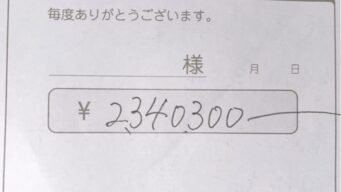 毎度ありがとうございます。
様 月 日
¥ 2,340,300